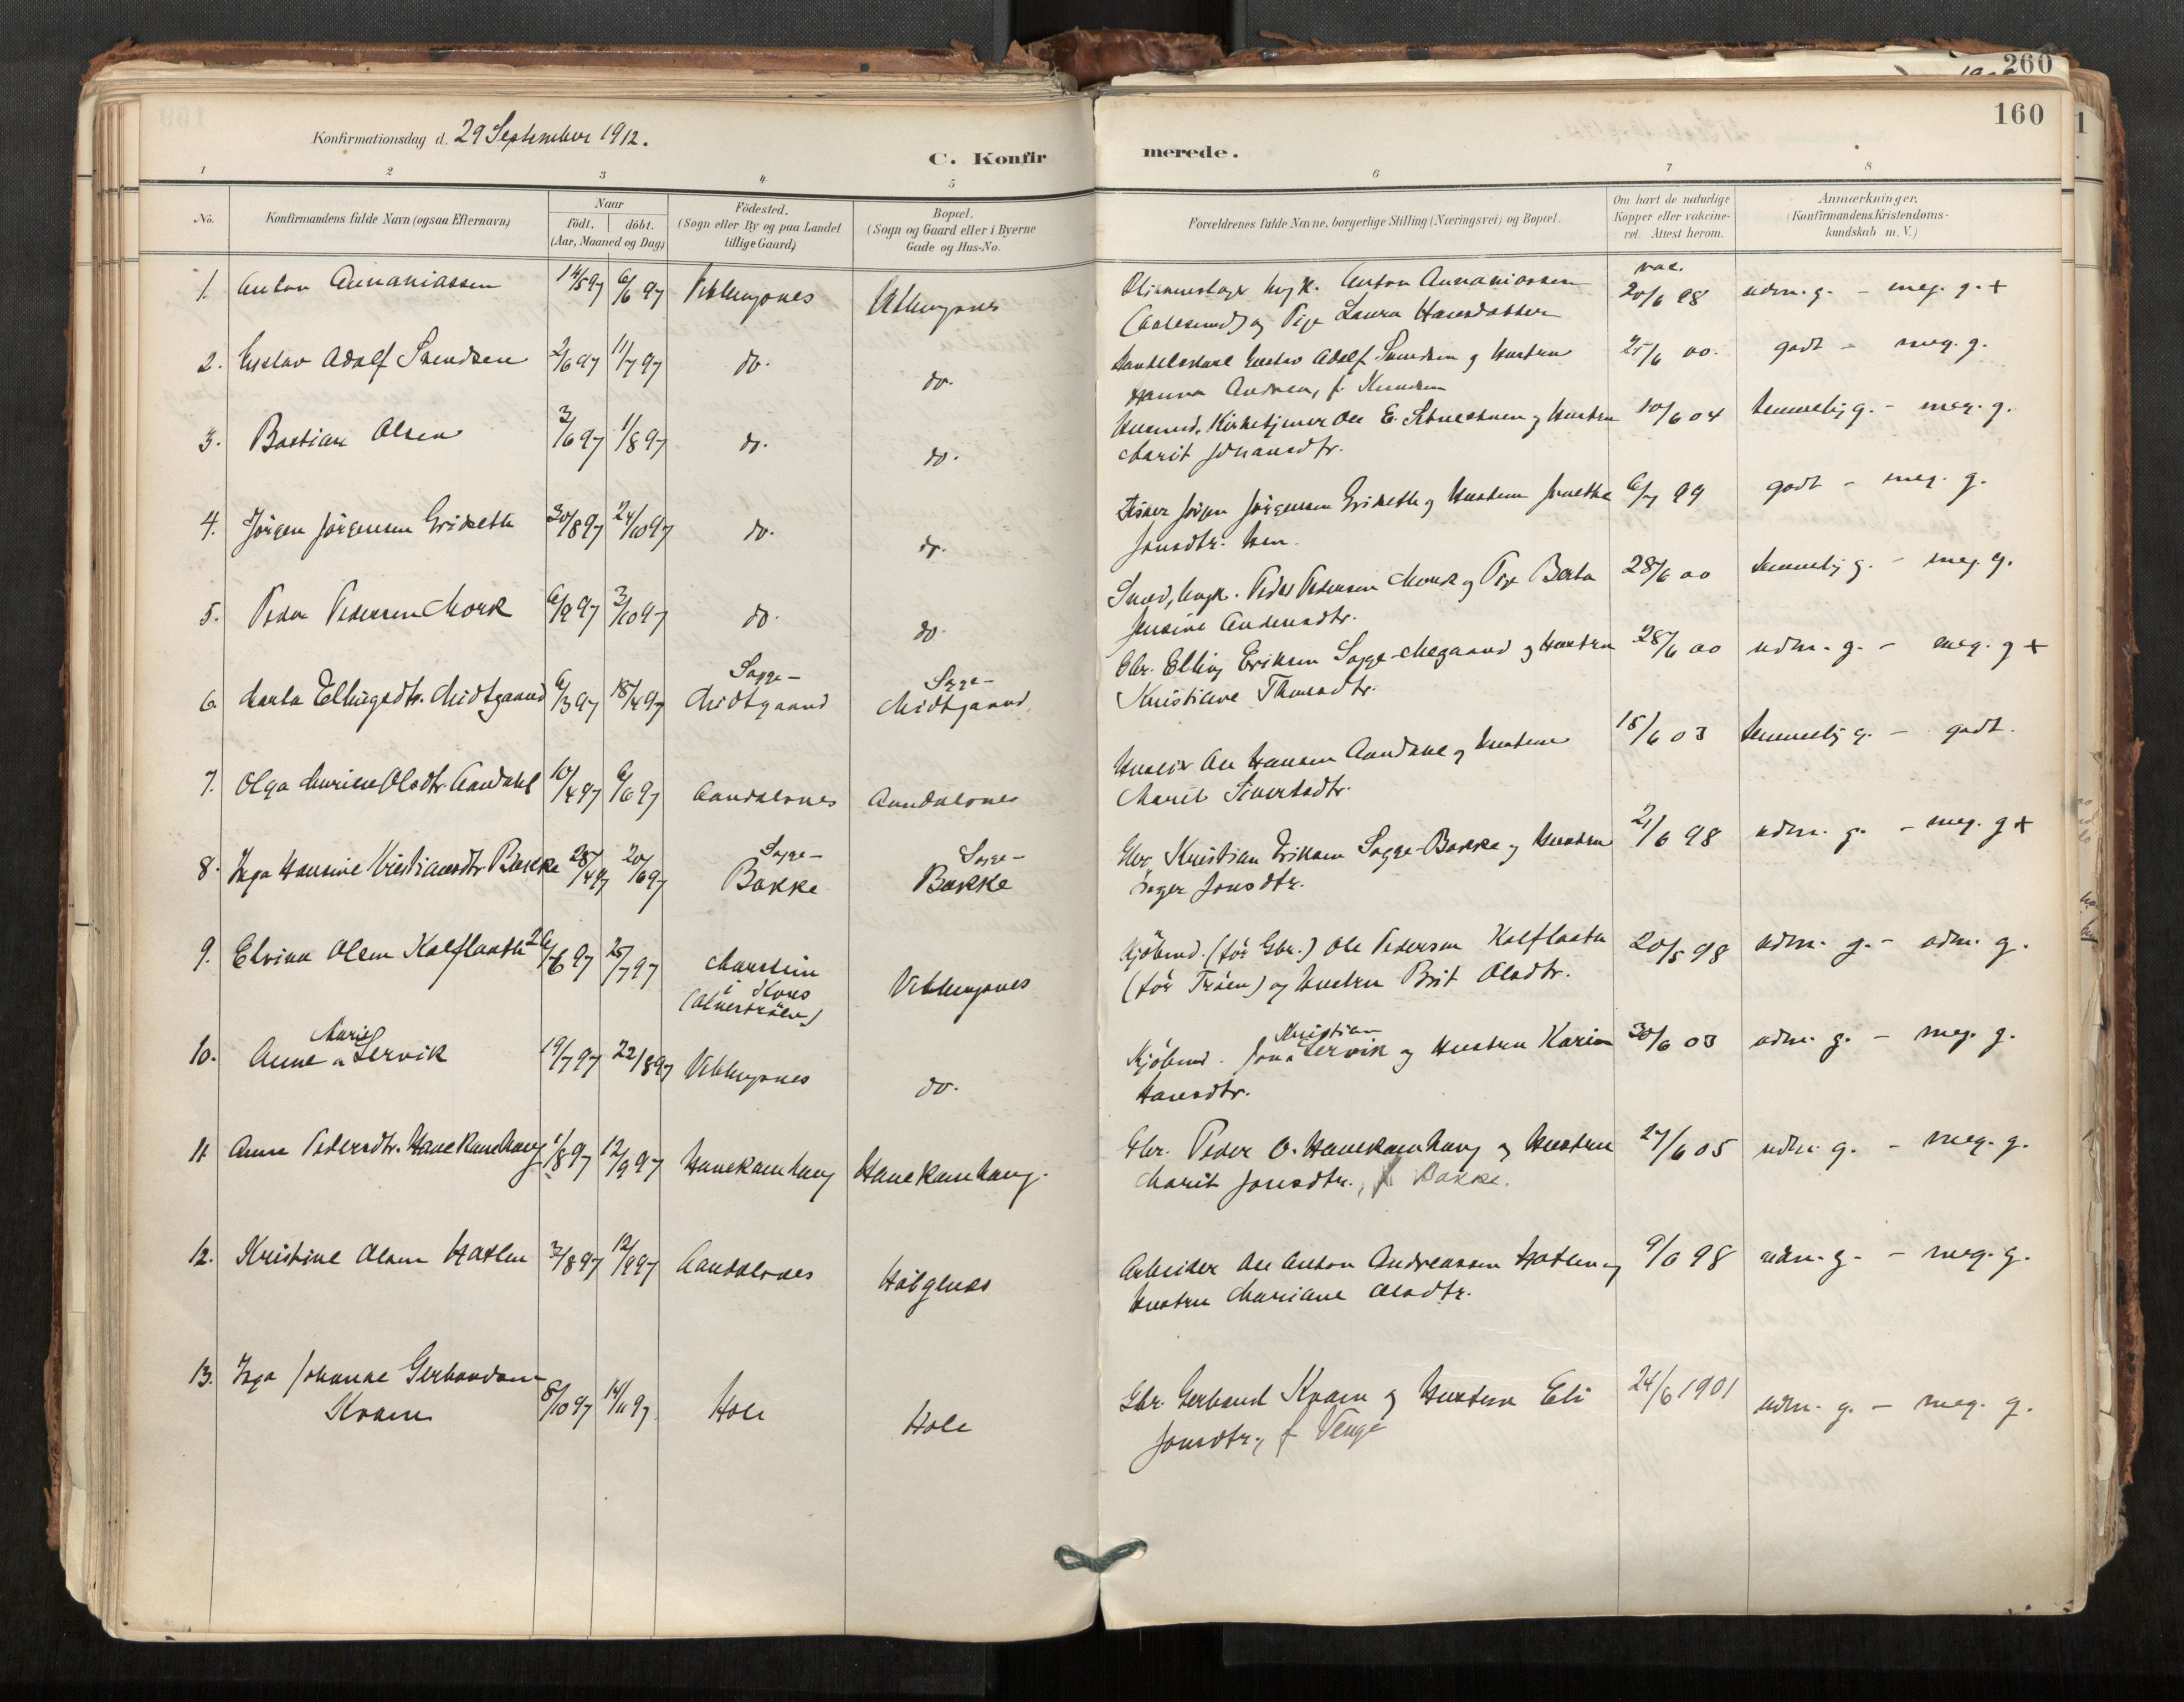 260
160
Konfirmationsdag d. 29 September 1912.
C. Konfirmerede.
1 2 3 4 5 6 7 8
No.
Konfirmandens fulde Navn (ogsaa Efternavn)
Naar
födt. döbt.
(Aar, Maaned og Dag)
Födested.
(Sogn eller By og paa Landet
tillige Gaard)
Bopæl.
(Sogn og Gaard eller i Byerne
Gade og Hus-No.
Forældrenes fulde Navne, borgerlige Stilling (Næringsvei) og Bopæl.
Om havt de naturlige
Kopper eller vakcine-
ret. Attest herom.
Anmærkninger.
(Konfirmandens Kristendoms-
kundskab m. V.)
1. Anton Annaniassen 14/5 97 6/6 97 Veblungsnes Veblungsnes
ungk. Anton Annaniassen
(Aalesund) og Pige Laura Hansdatter
vac.
20/6 98 udm. g. - meg. g. +
2. Gustav Adolf Svendsen 2/6 97 11/7 97 do. do.
Gustav Adolf Svendsen og Hustru
Hanna Andrea, f. Knudsen
25/6 00. godt - meg. g.
3. Bastian Olsen 3/6 97 1/8 97 do. do.
Husmd. Kirketjener Ole E. og Hustru
Marit Johansdtr.
10/6 04 temmelig g. - meg. g.
4. Jörgen Jörgensen Griseth 30/8 97 24/10 97 do. do.
Fisker Jörgen Jörgensen Griseth og Hustru
Jonsdtr.
6/7 99 godt - meg. g.
5. Peder Pedersen Mork 6/9 97 3/10 97 do. do.
Smed, ungk. Peder Pedersen Mork og Pige Berta
Jensine Andersdtr.
28/6 00 temmelig g. - meg. g.
6. Marta Ellingsdtr. Midtgaard 6/3 97 18/4 97
Sogge-
Midtgaard
Sogge-
Midtgaard.
Gbr. Elling Eriksen Sogge-Megaard og Hustru
Kristiane
28/6 00 udm. g. - meg. g +
7. Olga Marie Olsdtr. Aandahl 10/4 97 6/6 97 Aandalsnes Aandalsnes
Ole Hansen Aandahl og Hustru
Marit Sivertsdtr.
15/6 03 temmelig g. - godt.
8. Inga Hansine Kristiansdtr. Bakke 28/4 97 20/6 97
Sogge-
Bakke
Sogge-
Bakke
Gbr. Kristian Eriksen Sogge-Bakke og Hustru
Inger Jonsdtr.
21/6 98 udm. g. - meg. g +
9. Elvina Olsen Kalflaath 26/6 97 25/7 97
Marstein
i Kors
Veblungsnes
Kjöbmd. (för Gbr.) Ole Pedersen Kalflaath
(för Tröen) og Hustru Brit Olsdtr.
20/5 98 udm. g. - udm. g.
10. Anne Marie Lervik 19/7 97 22/8 97 Veblungsnes do.
Kjöbmd. Jon Kristian Lervik og Hustru Karin
Hansdtr.
30/6 03 udm. g. - meg. g.
11. Anna Pedersdtr. Hanekamhaug 1/8 97 12/9 97 Hanekamhaug Hanekamhaug.
Gbr. Peder O. Hanekamhaug og Hustru
Marit Jonsdtr., f. Bakke.
27/6 05 udm. g. - meg. g.
12. Kristine Olsen Hatlen 3/8 97 12/9 97 Aandalsnes Halgenes
Arbeider Ole Anton Andreassen Hatlen og
Hustru Mariane Olsdtr.
9/6 98 udm. g. - meg. g.
13. Inga Johanne Gerhardsen
Kvam
8/10 97 14/11 97 Hole Hole
Gbr. Gerhard Kvam og Hustru Eli
Jonsdtr., f Venge
24/6 1901 udm. g. - meg. g.